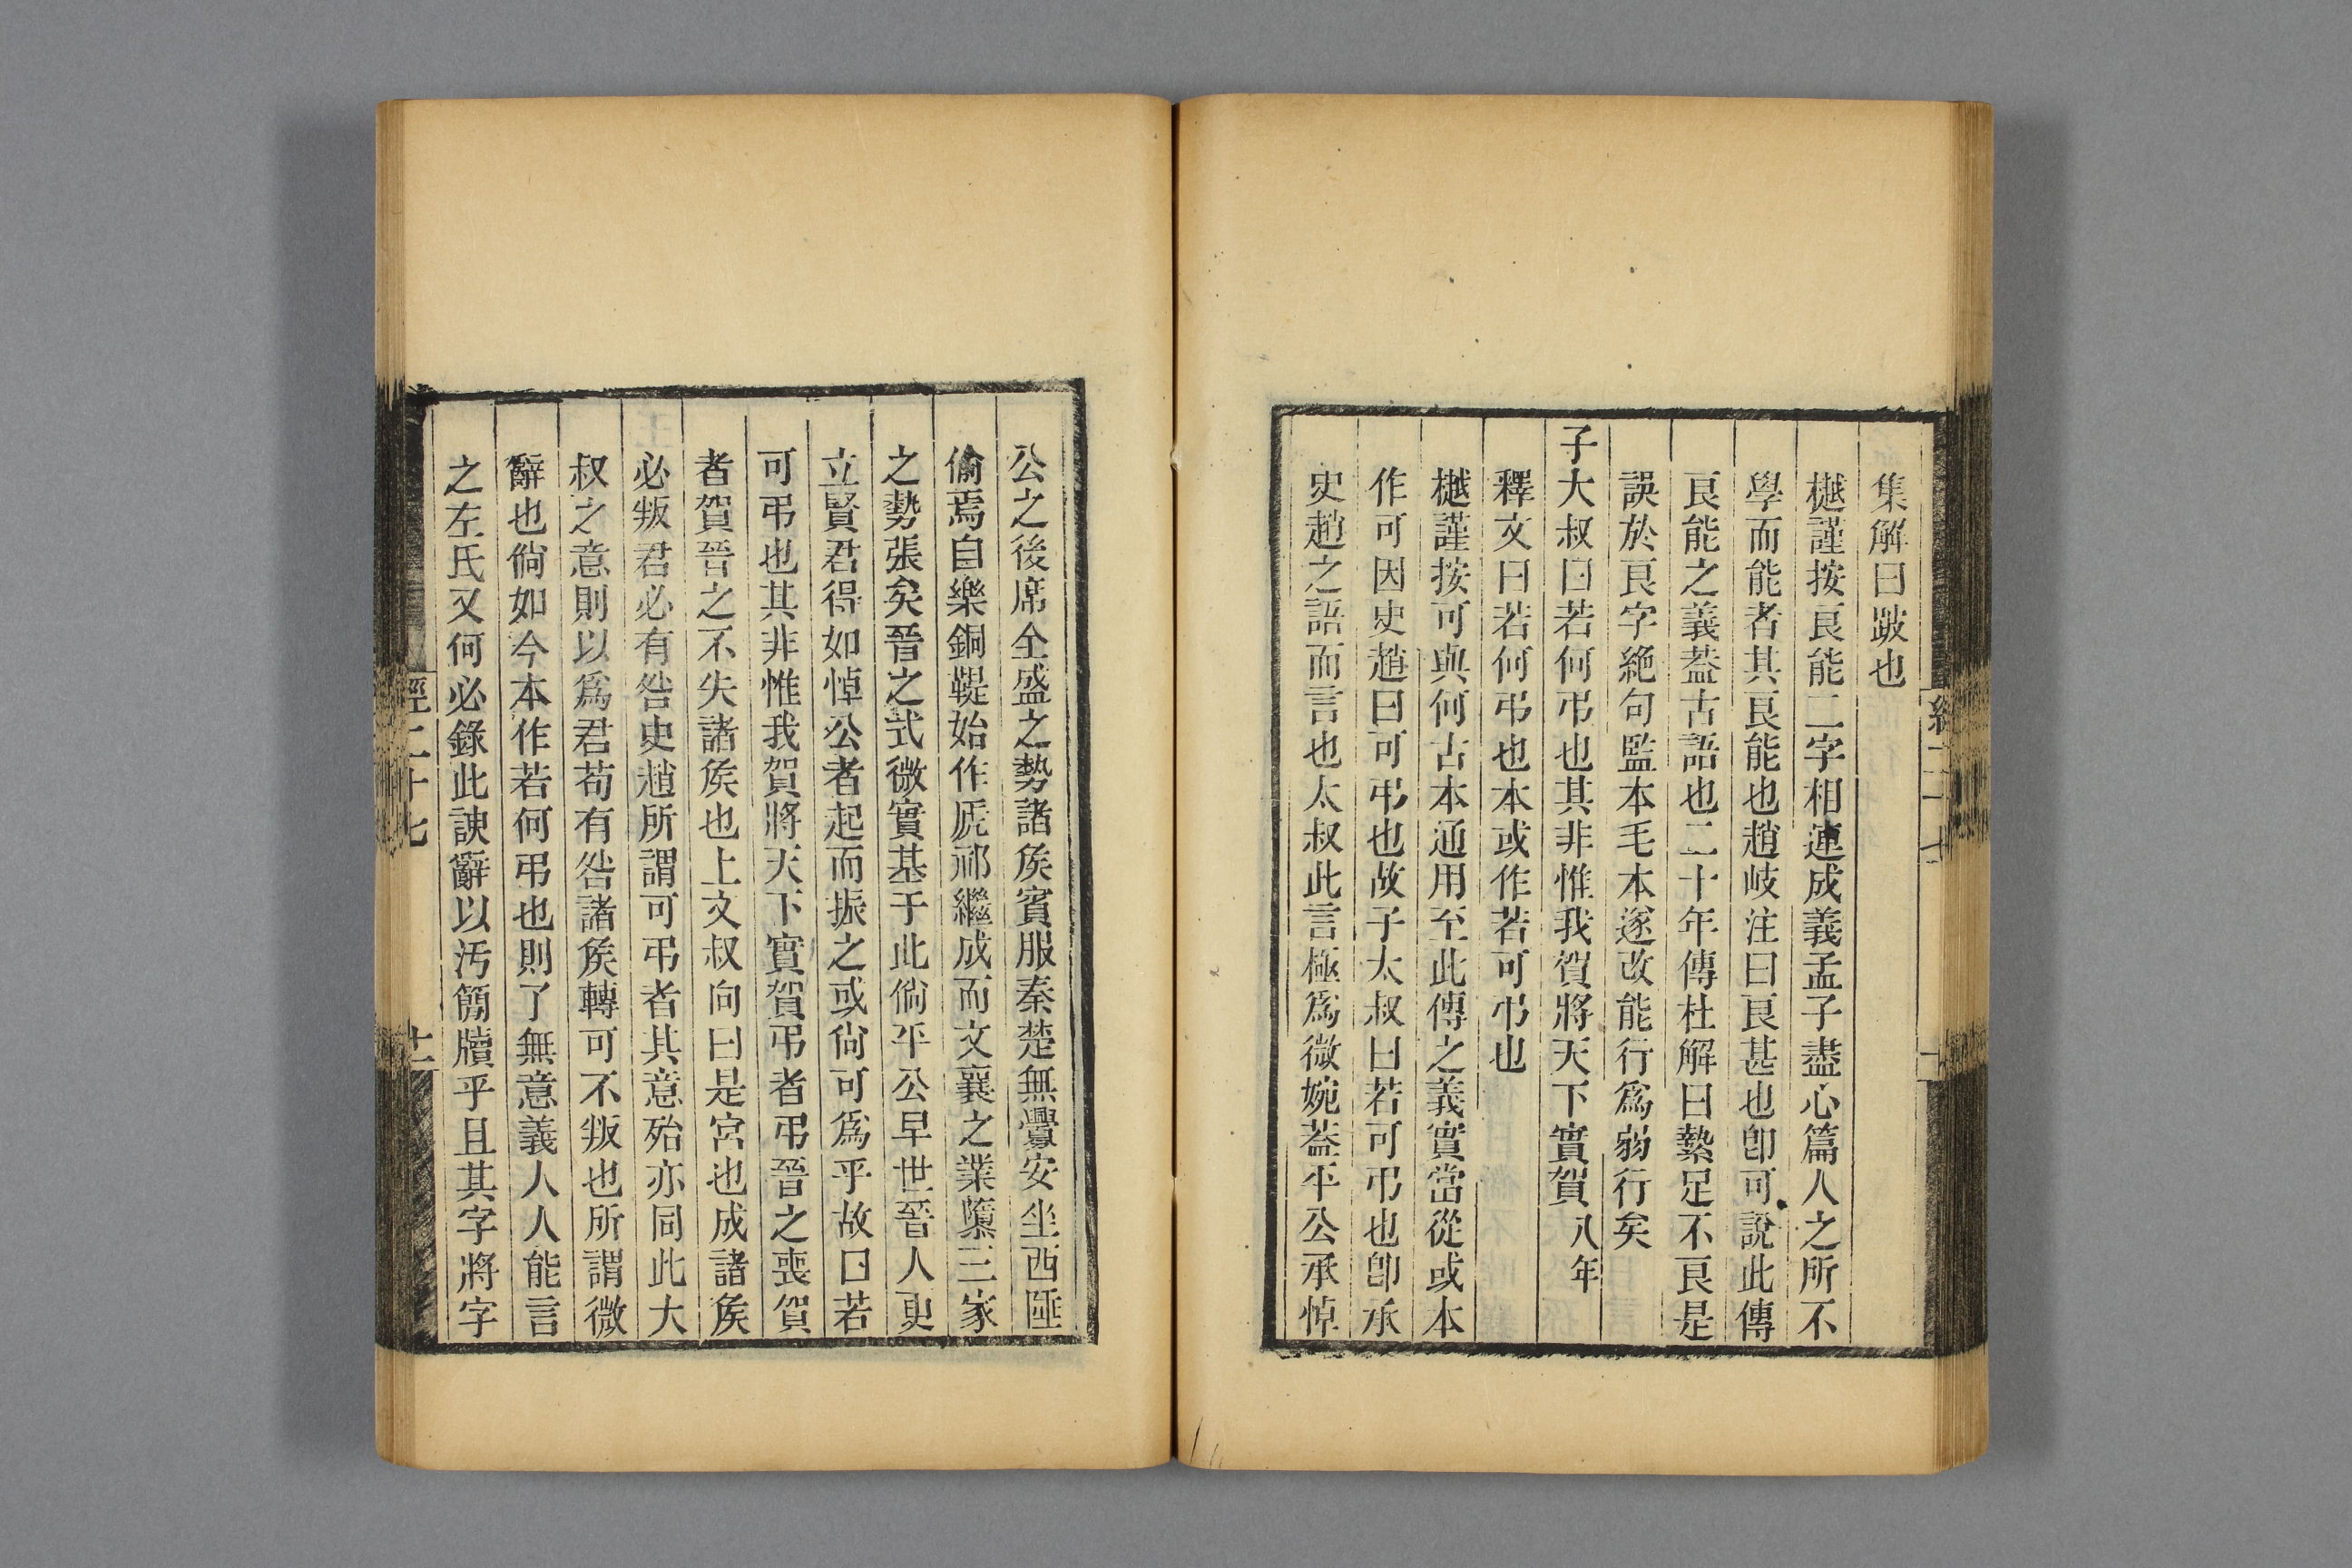 集解曰跛也
樾謹按良能二字相連成義孟子盡心篇人之所不
學而能者其良能也趙岐注曰良甚也卽可說此傳
良能之義葢古語也二十年傳杜解曰縶足不良是
誤於良字絶句監本毛本遂改能行爲弱行矣
子大叔曰若何弔也其非惟我賀將天下實賀八年
釋文曰若何弔也本或作若可弔也
樾謹按可與何古本通用至此傳之義實當從或本
作可因史趙曰可弔也故子太叔曰若可弔也卽承
史趙之語而言也太叔此言極爲微婉葢平公承悼
公之後席全盛之勢諸矦賓服秦楚無釁安坐西陲
偷焉自樂銅鞮始作虒祁繼成而文襄之業墮三家
之勢張矣晉之式微實基于此倘平公早世晉人更
立賢君得如悼公者起而振之或尚可爲乎故曰若
可弔也其非惟我賀將天下實賀弔者弔晉之喪賀
者賀晉之不失諸矦也上文叔向曰是宮也成諸矦
必叛君必有咎史趙所謂可弔者其意殆亦同此大
叔之意則以爲君苟有咎諸矦轉可不叛也所謂微
辭也倘如今本作若何弔也則了無意義人人能言
之左氏又何必錄此諛辭以汚簡牘乎且其字將字
經二十七
十一